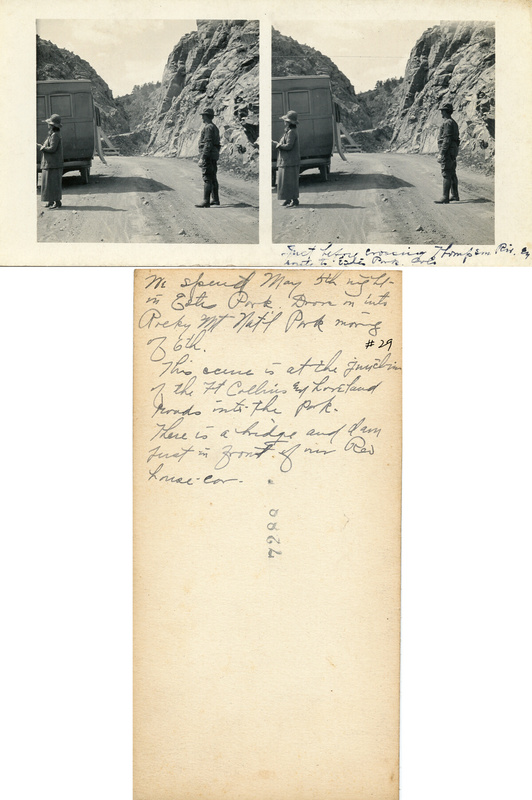 Just before crossing Thompson Riv.
route to Estes Park Colo
We spent May 5th night
in Estes Park. Drove on into
Rocky Mt Nat'l Park morng
of 6th.
#29
This scene is at the junction
of the Ft Collins and Loveland
roads into the Park.
There is a bridge and dam
just in front of our Reo
house-car.
7288